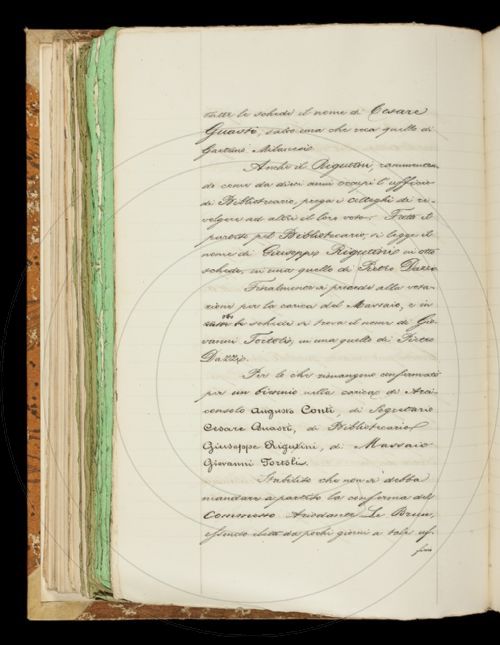 tutte le schede il nome di Cesare
Guasti, salvo una che reca quello di
Gaetano Milanesi.
Anche il Rigutini, rammentan
do come da dieci anni occupi l'ufficio
di Bibliotecario, prega i Colleghi di ri-
volgere ad altri il loro voto. Fatto il
partito pel Bibliotecario, si legge il
nome di Giuseppe Rigutini in otto
schede, in una quello di Pietro Dazzi.
Finalmente si procede alla vota-
zione per la carica del Massaio, e in
otto schede si trova il nome di Gio-
vanni Tortoli, in una quello di Pietro
Dazzi.
Per lo che rimangono confermati
per un biennio nella carica di Arci-
consolo Augusto Conti, di Segretario
Cesare Guasti, di Bibliotecario
Giuseppe Rigutini, di Massaio
Giovanni Tortoli.
Stabilito che non si debba
mandare a partito la conferma del
Commesso Ariodante Le Brun,
essendo eletto da pochi giorni a tale uf-
ficio